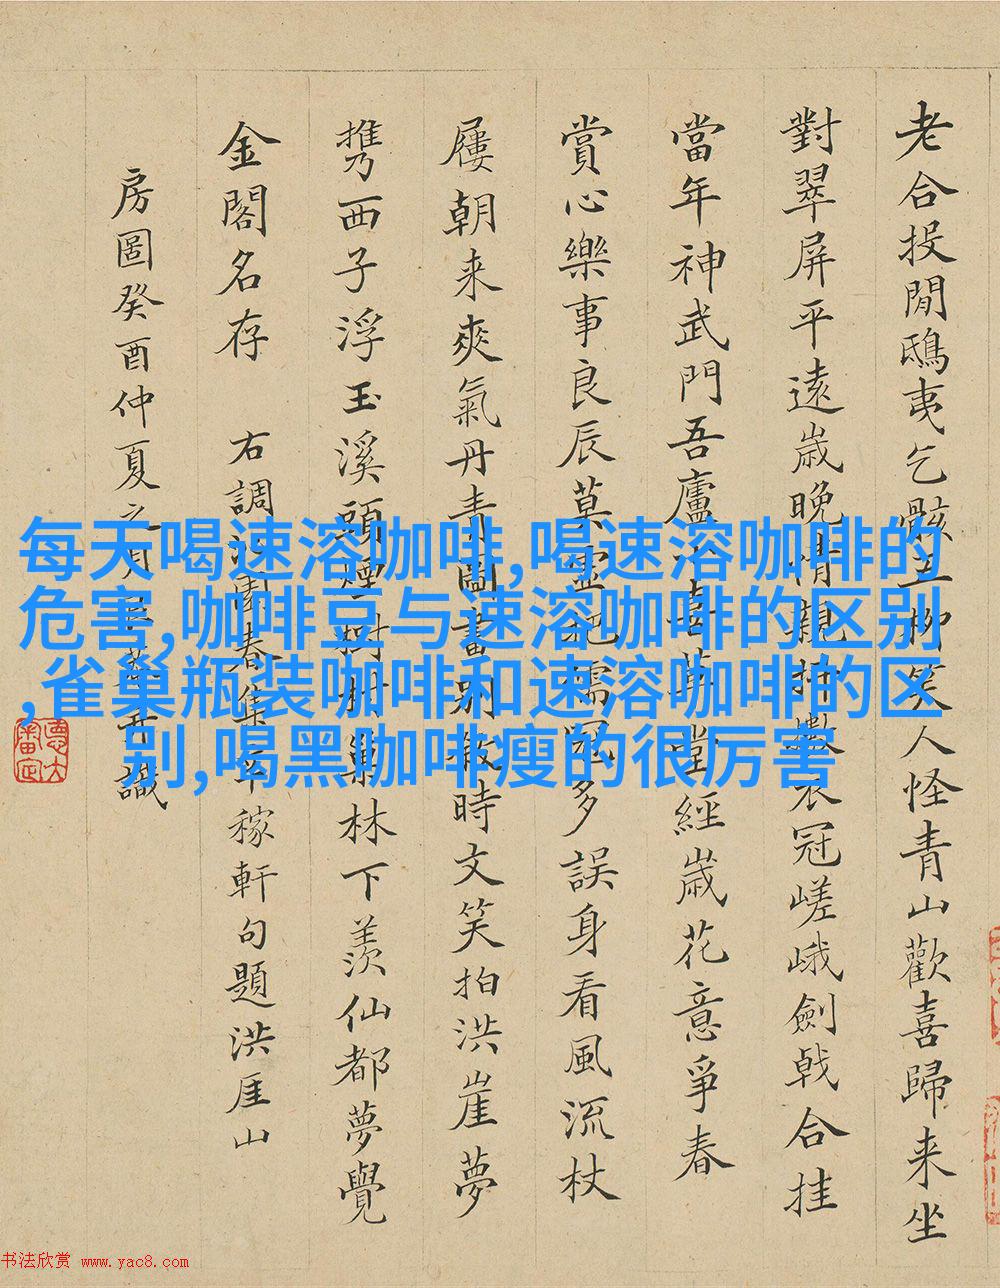 老合投閒鴟夷乞骸五柳笑人怪青山歡喜歸来坐
對翠屏平遠歲晚情親衣冠嵯峨劍戟合挂
當年神武門吾廬小喜草堂經歲花意爭春
賞心樂事良辰莫靈把儒冠多誤身看風流杖
屨朝来爽氣丹青圖畫別時文笑拍洪崖夢
携西子浮玉溪頭煙樹巢林下羨仙都夢覺
金閣名存 右調沁園春集辛稼軒句題洪厓山
房圖癸酉仲夏之月識
每天喝速溶咖啡,喝速溶咖啡的
危害,咖啡豆与速溶咖啡的区别
,雀巢瓶装咖啡和速溶咖啡的区
别,喝黑咖啡瘦的很厉害
书法欣赏 www.yac8.com